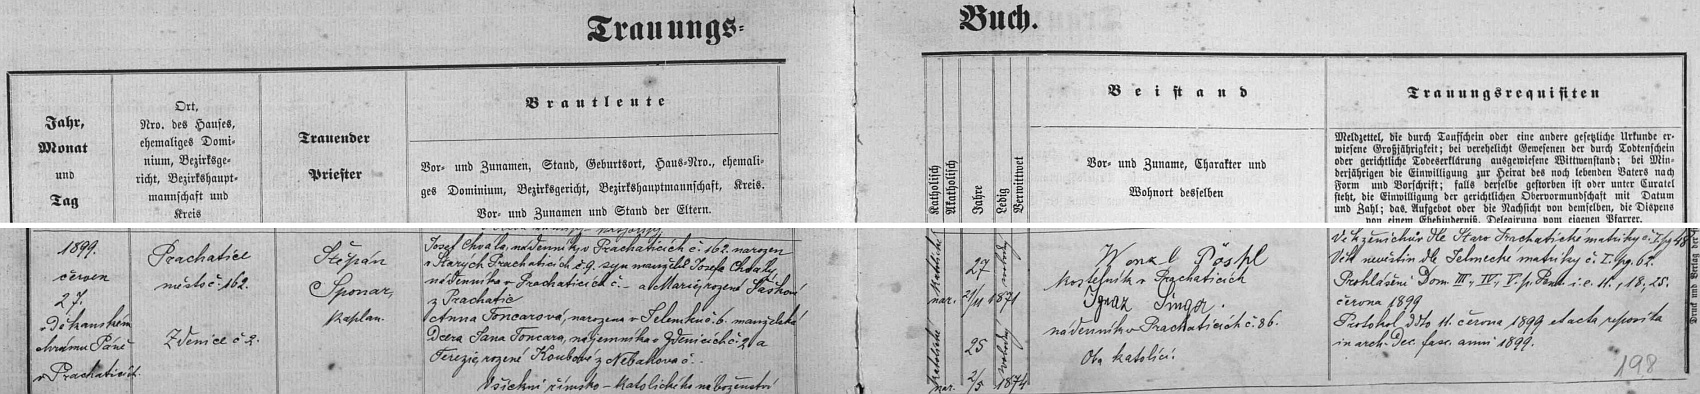 Trauungs-
Buch.
Jahr,
Monat
und
Tag
Ort,
Nro. des Hauses,
ehemaliges Domi-
nium, Bezirksge-
richt, Bezirkshaupt-
mannschaft und
Kreis
Trauender
Priester
Brautleute
Vor- und Zunamen, Stand, Geburtsort, Haus-Nro., ehemali-
ges Dominium, Bezirksgericht, Bezirkshauptmannschaft, Kreis.
Vor- und Zunamen und Stand der Eltern.
Katholisch
Akatholisch
Jahre
Ledig
Verwittwet
Beistand
Vor- und Zuname, Charakter und
Wohnort desselben
Trauungsrequisiten
Meldzettel, die durch Taufschein oder eine andere gesetzliche Urkunde er-
wiesene Großjährigkeit; bei verehelicht Gewesenen der durch Todtenschein
oder gerichtliche Todeserklärung ausgewiesene Wittwenstand; bei Min-
derjährigen die Einwilligung zur Heirat des noch lebenden Vaters nach
Form und Vorschrift; falls derselbe gestorben ist oder unter Curatel
steht, die Einwilligung der gerichtlichen Obervormundschaft mit Datum
und Zahl; das Aufgebot oder die Nachsicht von demselben, die Dispens
von einem Ehehinderniß, Delegirung vom eigenen Pfarrer.
1899.
červen
27.
v Děkanském
chrámu Páně
v Prachaticích.
Prachatice
město č. 162.
Zdenice č 2.
Štěpán
Šponar,
kaplan.
Josef Chvála, nádenník v Prachaticích č. 162. narozen
v Starých Prachaticích č. 9. syn manželů Josefa Chvály
nádenníka v Prachaticích č. – a Marie, rozené
z Prachatic
Anna Toncarová, narozena v č. 6. manželská
Dcera Jana Toncara, nájemníka v Zdenicích č. 2 a
Terezie, rozené Koubové z Nebahova č.
Všichni římsko-katolického náboženství
katolické
nar.
27
21/11
1871
svobodný
katolické
nar.
25
2/5
1874
svobodná
Wenzl Pöstl
kostelník v Prachaticích
Ignaz Singer.
nádenník v Prachaticích č. 86.
Oba katolíci.
Věk ženichův dle Staro Prachatické matriky
Věk nevěstin dle matriky č. I. pg. 62.
Prohlášení Dom. III., IV., V. p. Pent. i. e. 11., 18., 25.
června 1899
Protokol ddto 11. června 1899 et acta reposita
in arch. Dec. fasc. anni 1899.
198
Druck und Verlag der